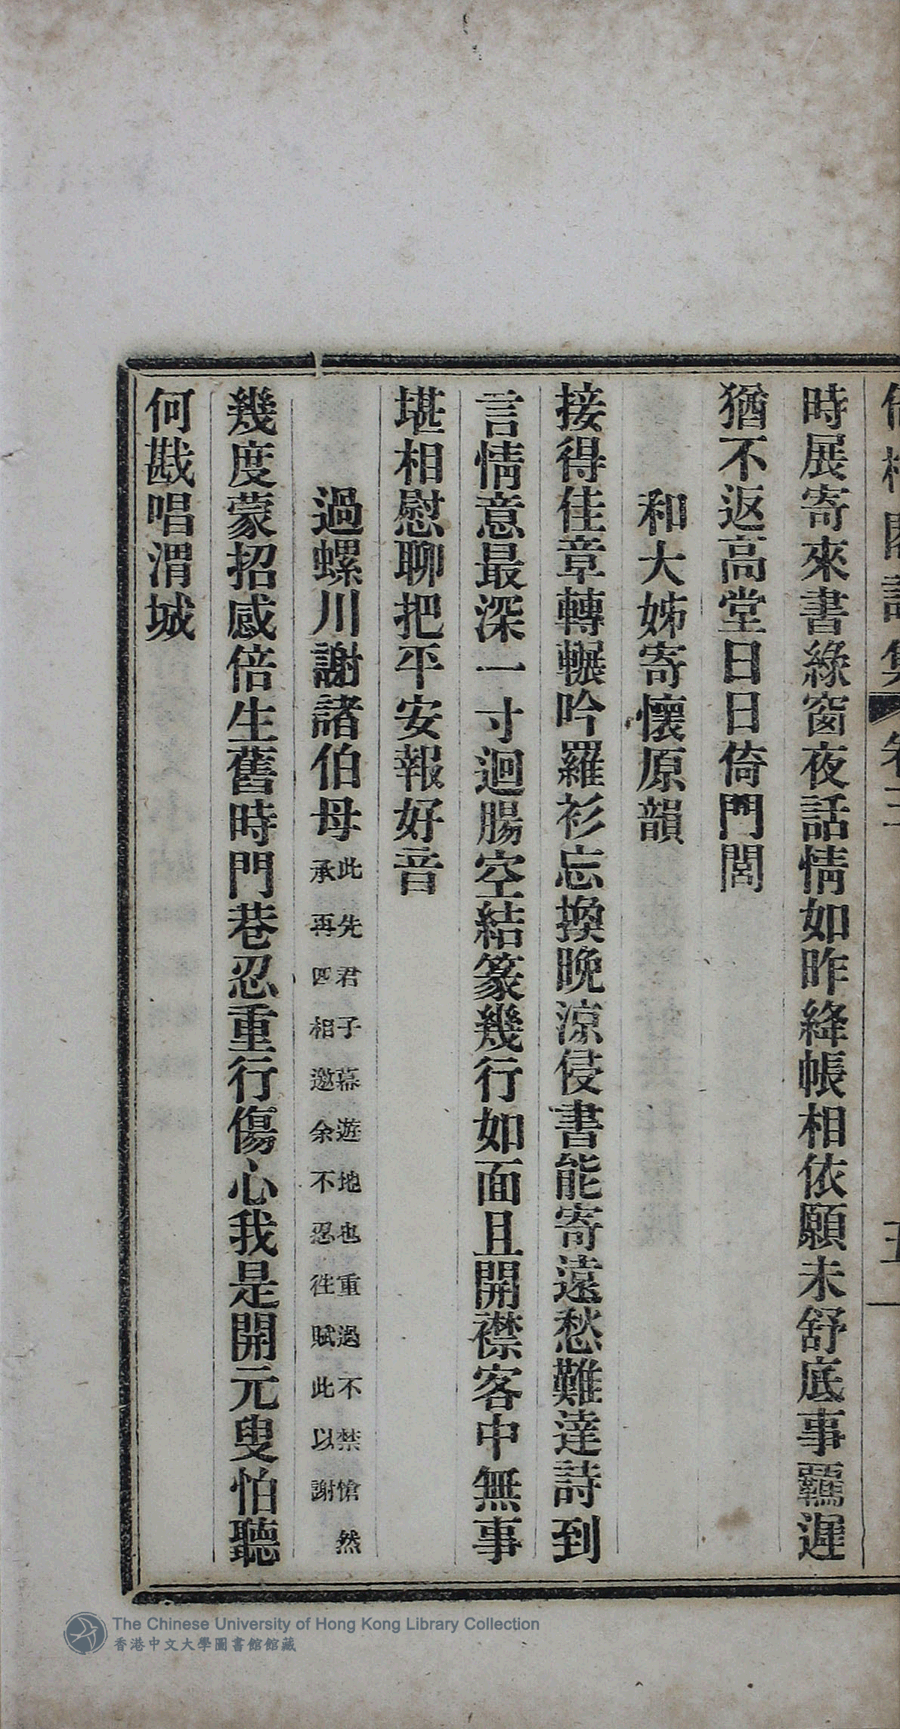 閣詩集 卷三 五
時展寄來書綠窗夜話情如昨絳帳相依願未舒底事羈遲
猶不返高堂日日倚門閭
和大姊寄懷原韻
接得佳章轉輾吟羅衫忘換晚涼侵書能寄遠愁難達詩到
言情意最深一寸迴腸空結篆幾行如面且開襟客中無事
堪相慰聊把平安報好音
過螺川謝諸伯母
此先君子幕遊地也重過不禁愴然
承再四相邀余不忍往賦此以謝
幾度蒙招感倍生舊時門巷忍重行傷心我是開元叟怕聽
何戡唱渭城
The Chinese University of Hong Kong Library Collection
香港中文大學圖書館館藏